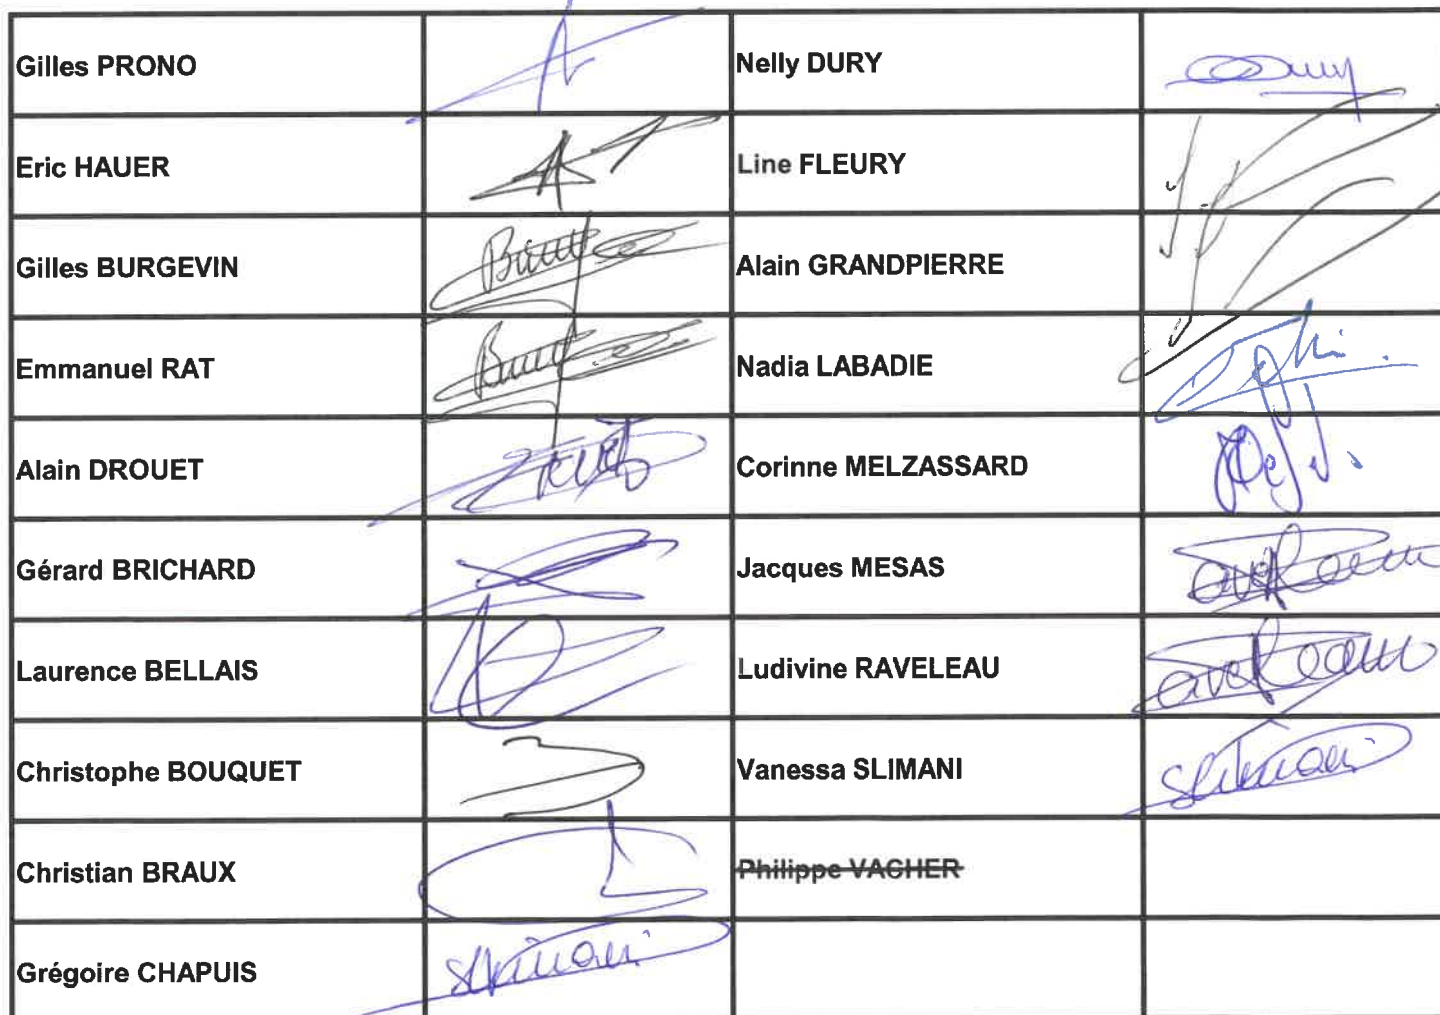 Gilles PRONO
Nelly DURY
Eric HAUER
Line FLEURY
Gilles BURGEVIN
Alain GRANDPIERRE
Emmanuel RAT
Nadia LABADIE
Alain DROUET
Corinne MELZASSARD
Gérard BRICHARD
Jacques MESAS
Laurence BELLAIS
Ludivine RAVELEAU
Christophe BOUQUET
Vanessa SLIMANI
Slimani
Christian BRAUX
Philippe VACHER
Grégoire CHAPUIS
Slimani